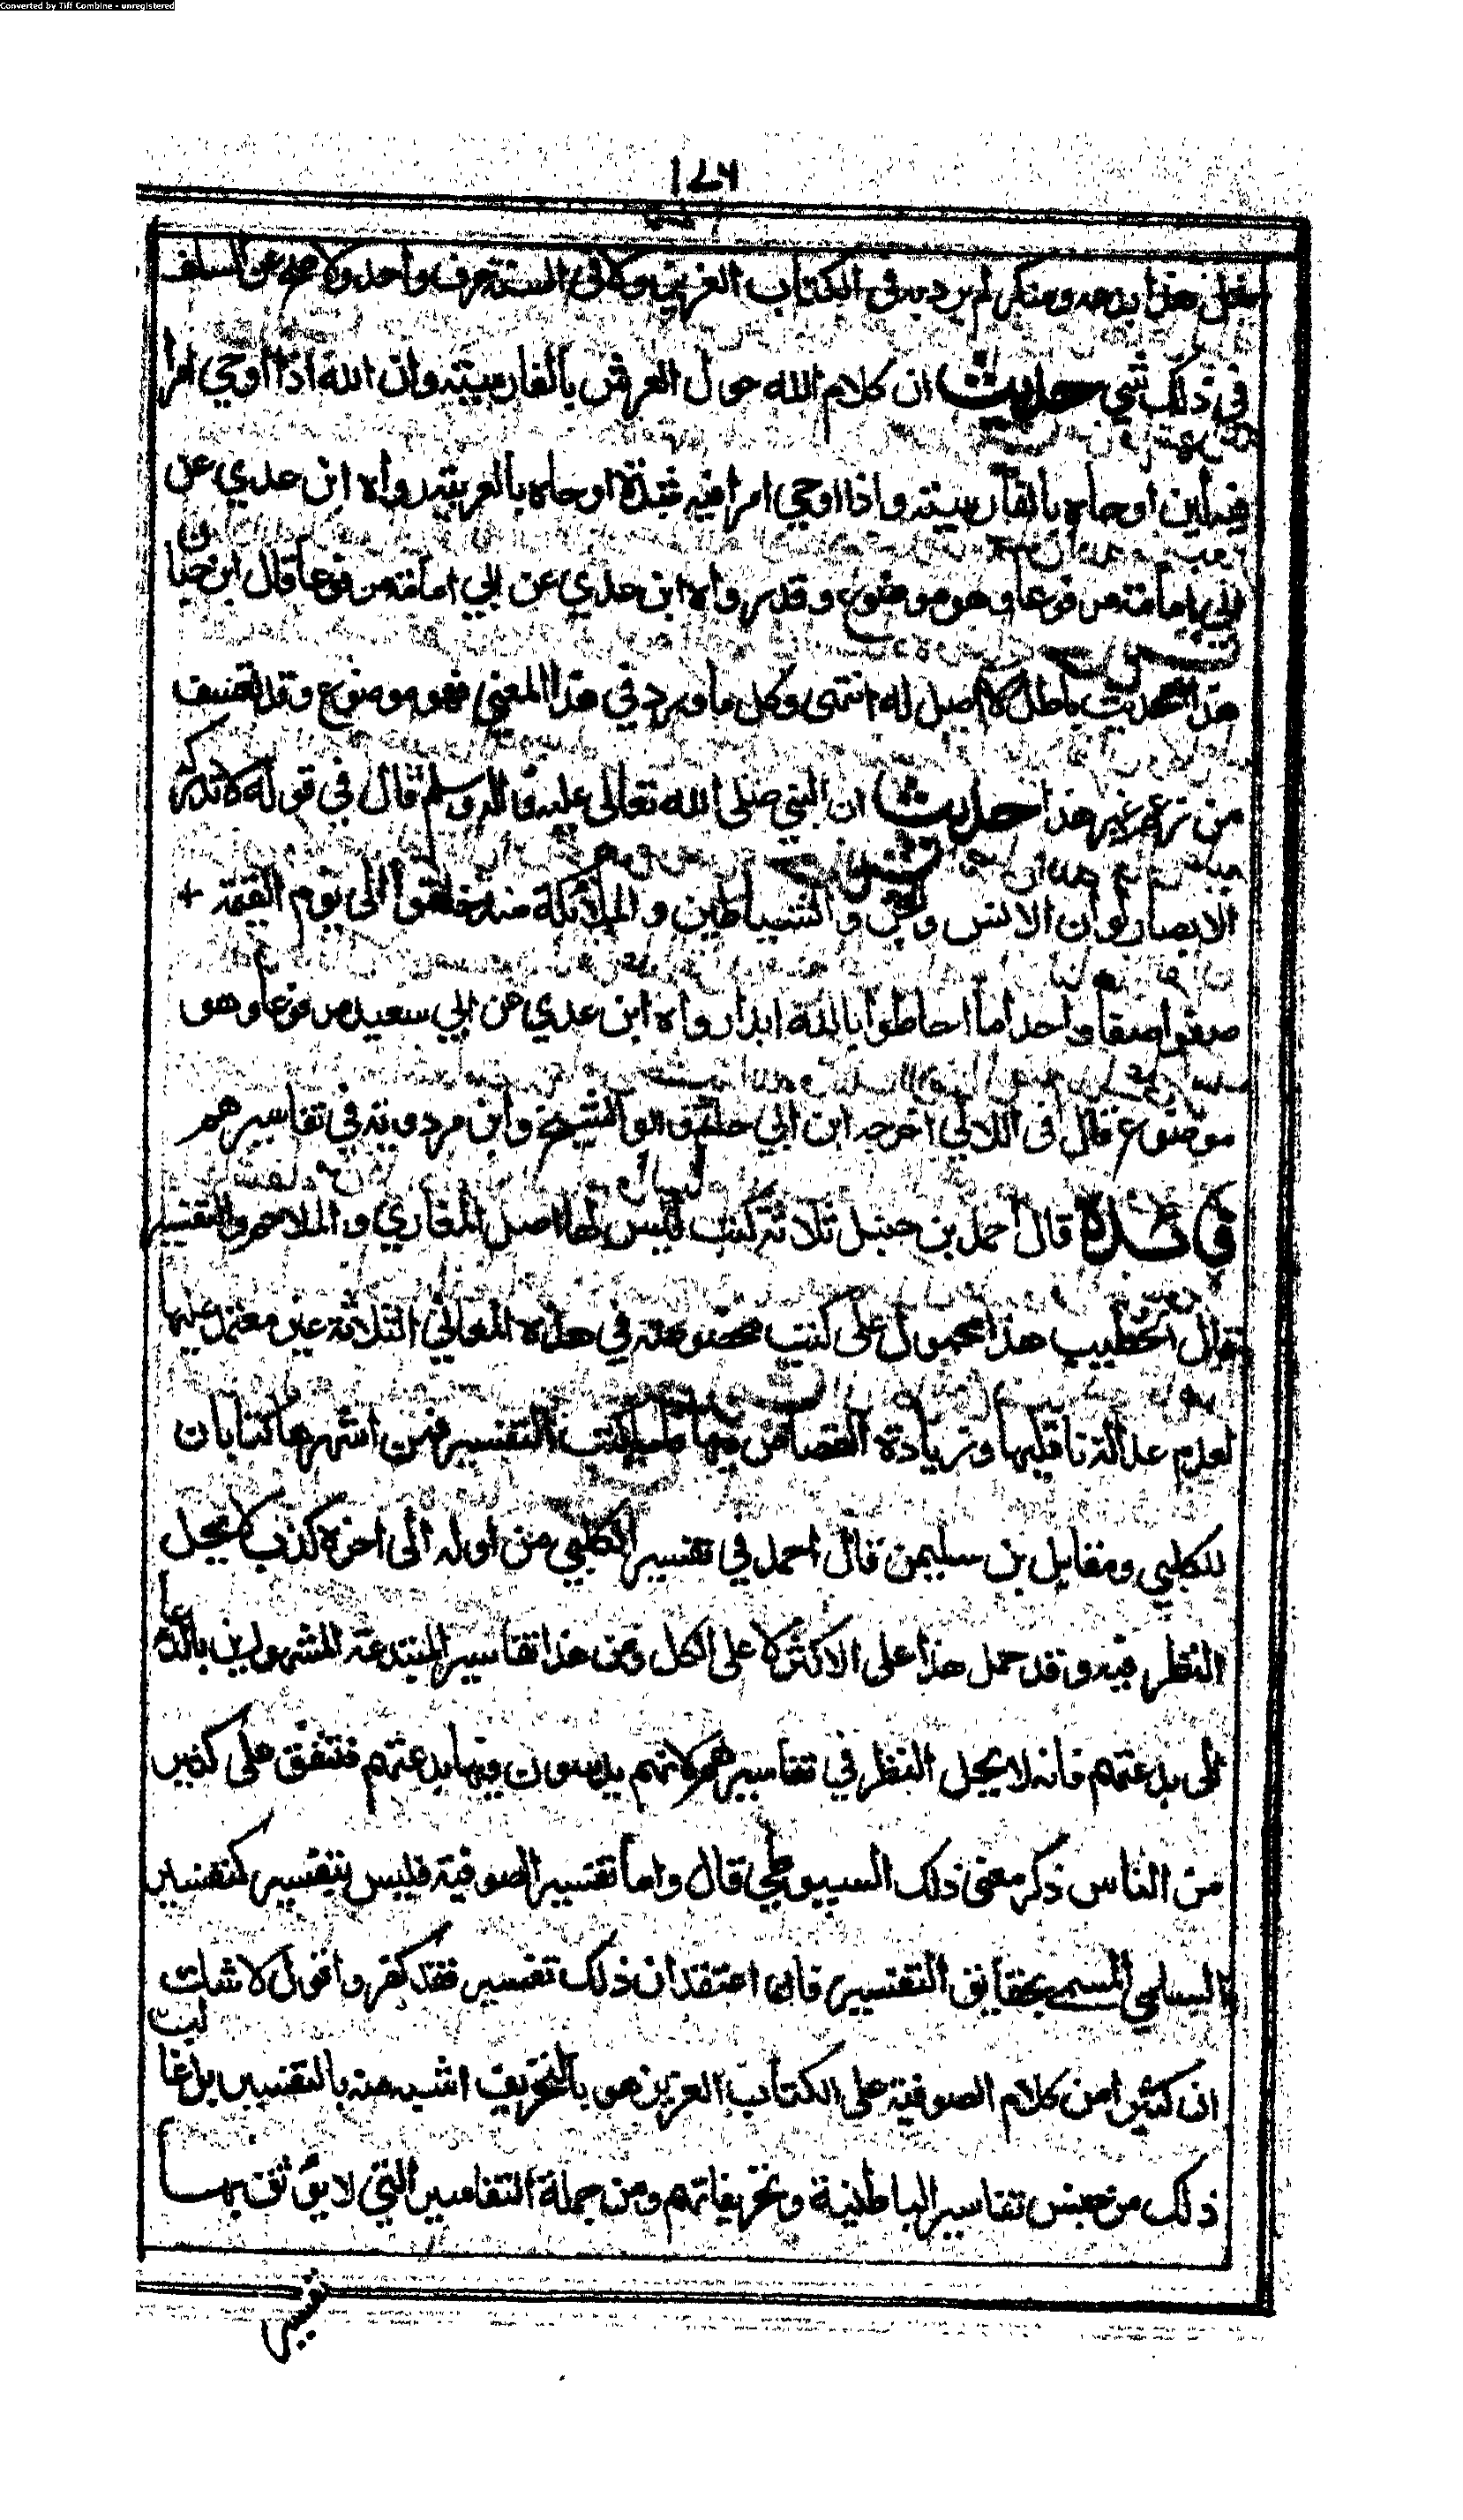 Converted by Tiff Combine - unregistered
١٧٦
هذا بدعة ومنكر لم يرد به في الكتاب العزيز ولا في السنة حرف واحد ولا صح عن السلف
في ذلك شي حديث ان كلام الله حول العرش بالفارسية وان الله اذا اوحي امرا
فيه لين اوحاه بالفارسية واذا اوحي امرا فيه شدة اوحاه بالعربية رواه ابن عدي عن
ابي امامة مرفوعا وهو موضوع وقد رواه ابن عدي عن ابي امامة مرفوعا قال ابن حبان
هذا الحديث باطل لا اصل له انتهى وكل ما ورد في هذا المعني فهو موضوع وقد تعسف
من زعم غير هذا حديث ان النبي صلى الله تعالى عليه واله وسلم قال في قوله لا تدركه
الابصار لو ان الانس والجن والشياطين والملائكة منذ خلقوا الى يوم القيمة +
صفوا صفا واحدا ما احاطوا بالله ابدا رواه ابن عدي عن ابي سعيد مرفوعا وهو
موضوع قال في اللالي اخرجه ابن ابي حاتم وابو الشيخ وابن مردويه في تفاسيرهم
فائدة قال احمد بن حنبل ثلاثة كتب ليس لها اصل المغازي والملاحم والتفسير
قال الخطيب هذا محمول على كتب مخصوصة في هذه المعاني الثلاثة غير معتمد عليها
لعدم عدالة ناقليها وزيادة القصاص فيها كتب التفسير فمن اشهرها كتابان
للكلبي ومقاتل بن سليمن قال احمد في تفسير الكلبي من اوله الى اخره كذب لا يحل
النظر فيه وقد حمل هذا على الاكثر لا على الكل ومن هذا تفاسير المبتدعة المشهورين بالدعا
الى بدعتهم فانه لا يحل النظر في تفاسيرهم لانهم يدسون فيها بدعتهم فتنفق على كثير
من الناس ذكر معنى ذلك السيوطي قال واما تفسير الصوفية فليس بتفسير كتفسير
السلمي المسمى بحقايق التفسير فان اعتقد ان ذلك تفسير فقد كفر واقول لا شك
ان كثيرا من كلام الصوفية على الكتاب العزيز هو بالتحريف اشبه منه بالتفسير بل غالب
ذلك من جنس تفاسير الباطنية وتحريفاتهم ومن جملة التفاسير التي لا يوثق بها
تفسير